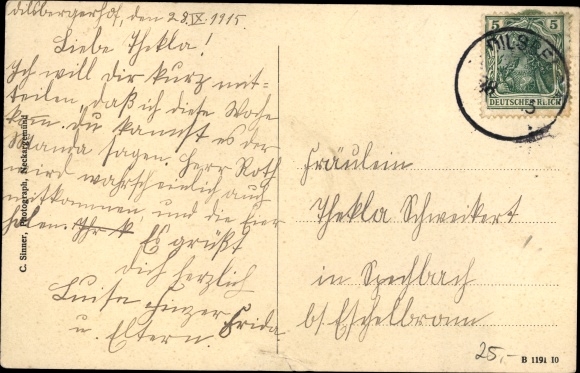 dilsbergerhof, den 28.IX.1915.
Liebe Thekla!
Ich will dir kurz mit-
teilen, daß ich diese Woche
kom. du kannst es der
Mama sagen, Herr Roth
wird wahrscheinlich auch
mitkommen, und die Eier
holen.
Es grüßt
dich herzlich
Luise
Frida
u. Eltern.
C. Sinner, Photograph, Neckargemünd
5 5
DEUTSCHES REICH
DILSBERG
Fräulein
Thekla Schweikert
in Spechbach
b/ Eschelbronn
25,-
B 1191 10